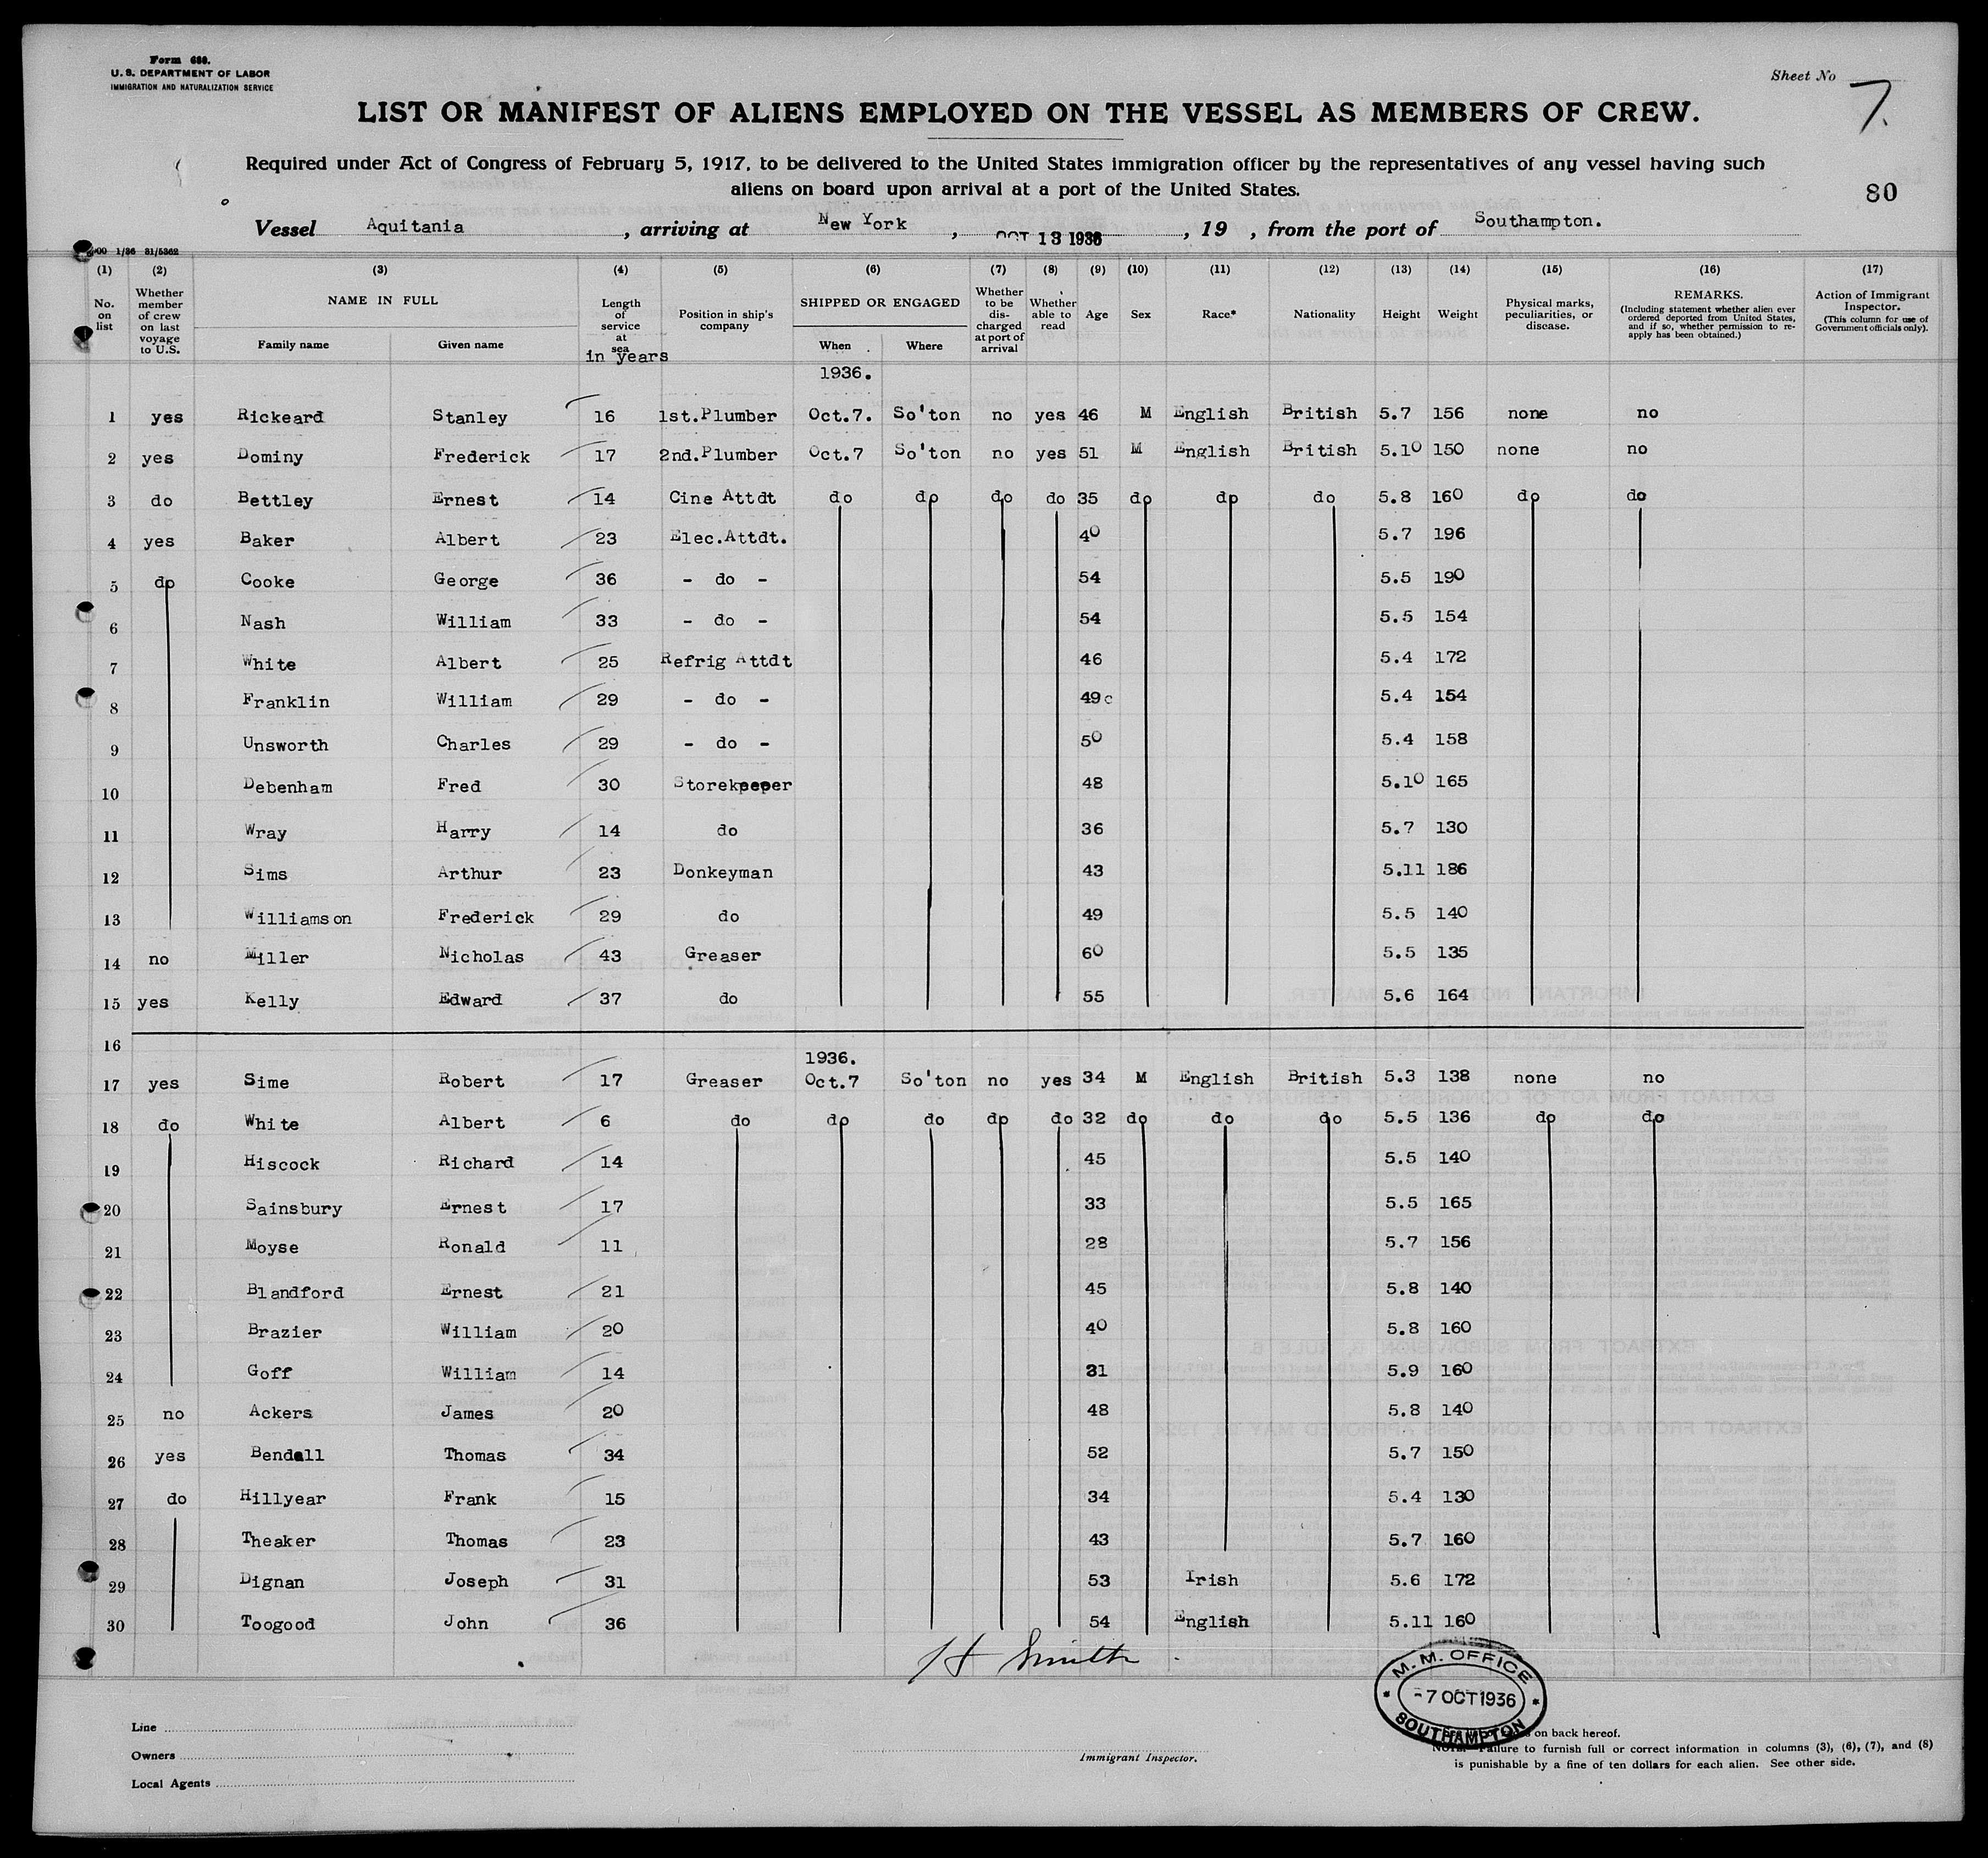 Form 680.
U. S. DEPARTMENT OF LABOR
IMMIGRATION AND NATURALIZATION SERVICE
Sheet No 7.
LIST OR MANIFEST OF ALIENS EMPLOYED ON THE VESSEL AS MEMBERS OF CREW.
Required under Act of Congress of February 5, 1917, to be delivered to the United States immigration officer by the representatives of any vessel having such
aliens on board upon arrival at a port of the United States.
80
Vessel Aquitania, arriving at New York, OCT 13 1936, 19 , from the port of Southampton.
00 1/36 81/5362
(1) (2) (3) (4) (5) (6) (7) (8) (9) (10) (11) (12) (13) (14) (15) (16) (17)
No. on list
Whether member of crew on last voyage to U.S.
NAME IN FULL
Family name Given name
Length of service at sea
in years
Position in ship's company
SHIPPED OR ENGAGED
When Where
Whether to be discharged at port of arrival
Whether able to read
Age
Sex
Race*
Nationality
Height
Weight
Physical marks, peculiarities, or disease.
REMARKS.
(Including statement whether alien ever ordered deported from United States, and if so, whether permission to reapply has been obtained.)
Action of Immigrant Inspector.
(This column for use of Government officials only).
1936.
1 yes Rickeard Stanley 16 1st.Plumber Oct.7. So'ton no yes 46 M English British 5.7 156 none no
2 yes Dominy Frederick 17 2nd.Plumber Oct.7 So'ton no yes 51 M English British 5.10 150 none no
3 do Bettley Ernest 14 Cine Attdt do do do do 35 do do do 5.8 160 do do
4 yes Baker Albert 23 Elec.Attdt. 40 5.7 196
5 do Cooke George 36 - do - 54 5.5 190
6 Nash William 33 - do - 54 5.5 154
7 White Albert 25 Refrig Attdt 46 5.4 172
8 Franklin William 29 - do - 49c 5.4 154
9 Unsworth Charles 29 - do - 50 5.4 158
10 Debenham Fred 30 Storekeeper 48 5.10 165
11 Wray Harry 14 do 36 5.7 130
12 Sims Arthur 23 Donkeyman 43 5.11 186
13 Williamson Frederick 29 do 49 5.5 140
14 no Miller Nicholas 43 Greaser 60 5.5 135
15 yes Kelly Edward 37 do 55 5.6 164
16
1936.
17 yes Sime Robert 17 Greaser Oct.7 So'ton no yes 34 M English British 5.3 138 none no
18 do White Albert 6 do do do do do 32 do do do 5.5 136 do do
19 Hiscock Richard 14 45 5.5 140
20 Sainsbury Ernest 17 33 5.5 165
21 Moyse Ronald 11 28 5.7 156
22 Blandford Ernest 21 45 5.8 140
23 Brazier William 20 40 5.8 160
24 Goff William 14 31 5.9 160
25 no Ackers James 20 48 5.8 140
26 yes Bendall Thomas 34 52 5.7 150
27 do Hillyear Frank 15 34 5.4 130
28 Theaker Thomas 23 43 5.7 160
29 Dignan Joseph 31 53 Irish 5.6 172
30 Toogood John 36 54 English 5.11 160
H Smith
M. M. OFFICE
-7 OCT 1936
SOUTHAMPTON
Line
Owners
Local Agents
Immigrant Inspector.
on back hereof.
NOTE. Failure to furnish full or correct information in columns (3), (6), (7), and (8)
is punishable by a fine of ten dollars for each alien. See other side.